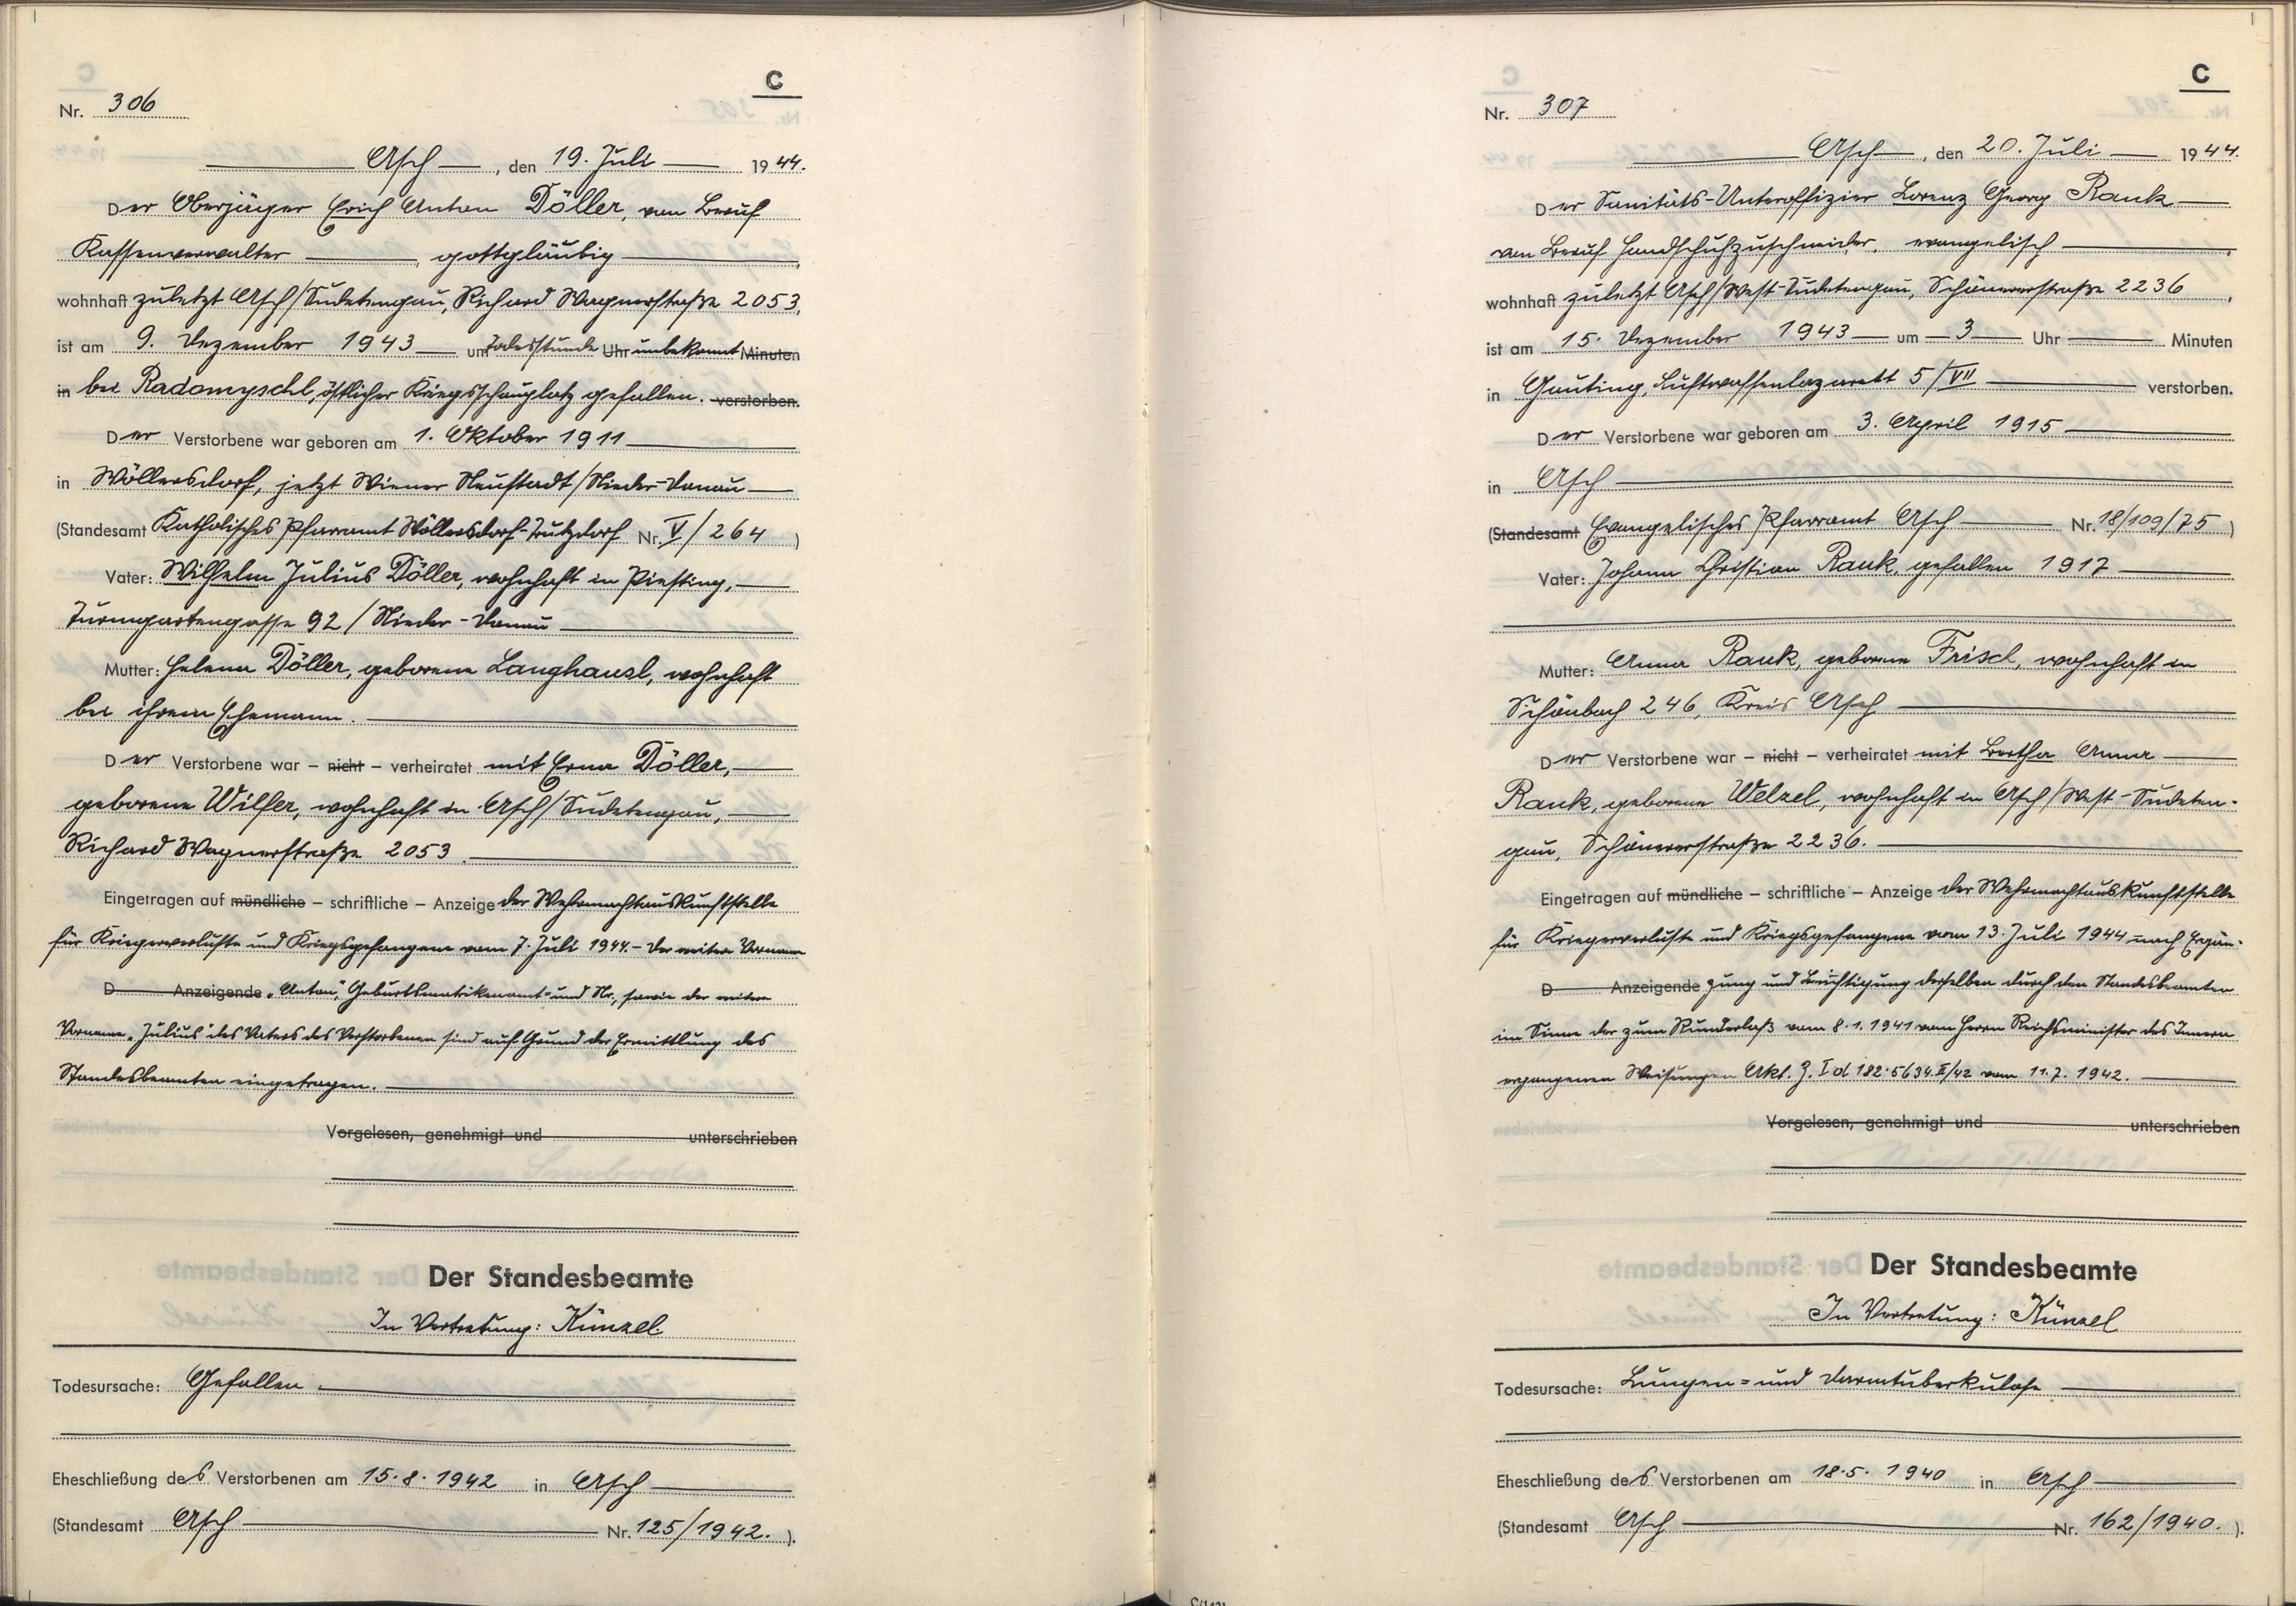 C
Nr. 306
Asch, den 19. Juli 1944.
Der Oberjäger Erich Anton Döller, von Beruf
Kassenverwalter, gottgläubig,
wohnhaft zuletzt Asch/Sudetengau, Richard Wagnerstraße 2053,
ist am 9. Dezember 1943 um Todesstunde Uhr unbekannt Minuten
in bei Radomyschl, östlicher Kriegsschauplatz gefallen. verstorben.
Der Verstorbene war geboren am 1. Oktober 1911
in Wöllersdorf, jetzt Wiener Neustadt/Nieder-Donau
(Standesamt Katholisches Pfarramt Wöllersdorf-Trutzdorf Nr. V/264)
Vater: Wilhelm Julius Döller, wohnhaft in Piesting,
Turmgartengasse 92 / Nieder-Donau
Mutter: Helena Döller, geborene Langhausl, wohnhaft
bei ihrem Ehemann.
Der Verstorbene war – nicht – verheiratet mit Erna Döller,
geborene Wilfer, wohnhaft in Asch/Sudetengau,
Richard Wagnerstraße 2053.
Eingetragen auf mündliche – schriftliche – Anzeige der Wehrmachtauskunftstelle
für Kriegerverluste und Kriegsgefangene vom 7. Juli 1944. – Der weitere Vorname
D Anzeigende „Anton“, Geburtsmatrikenamt und Nr., sowie der weitere
Vorname „Julius“ des Vaters des Verstorbenen sind auf Grund der Ermittlung des
Standesbeamten eingetragen.
Vorgelesen, genehmigt und unterschrieben
Der Standesbeamte
In Vertretung: Künzel
Todesursache: Gefallen.
Eheschließung des Verstorbenen am 15.8.1942 in Asch
(Standesamt Asch Nr. 125/1942.).
C
Nr. 307
Asch, den 20. Juli 1944.
Der Sanitäts-Unteroffizier Lorenz Georg Rank
von Beruf Handschuhzuschneider, evangelisch,
wohnhaft zuletzt Asch/West-Sudetengau, Schönererstraße 2236,
ist am 15. Dezember 1943 um 3 Uhr Minuten
in Gauting, Luftwaffenlazarett 5/VII verstorben.
Der Verstorbene war geboren am 3. April 1915
in Asch
(Standesamt Evangelisches Pfarramt Asch Nr. 18/109/75)
Vater: Johann Christian Rank, gefallen 1917
Mutter: Anna Rank, geborene Frisch, wohnhaft in
Schönbach 246, Kreis Asch
Der Verstorbene war – nicht – verheiratet mit Bertha Anna
Rank, geborene Welzel, wohnhaft in Asch/West-Sudeten-
gau, Schönererstraße 2236.
Eingetragen auf mündliche – schriftliche – Anzeige der Wehrmachtauskunftstelle
für Kriegerverluste und Kriegsgefangene vom 13. Juli 1944 nach Ergän-
D Anzeigende zung und Berichtigung derselben durch den Standesbeamten
im Sinne der zum Runderlaß vom 8.1.1941 vom Herrn Reichsminister des Innern
ergangenen Weisungen Akt. Z. I d 182.5634 II/42 vom 11.7.1942.
Vorgelesen, genehmigt und unterschrieben
Der Standesbeamte
In Vertretung: Künzel
Todesursache: Lungen- und Darmtuberkulose
Eheschließung des Verstorbenen am 18.5.1940 in Asch
(Standesamt Asch Nr. 162/1940.).